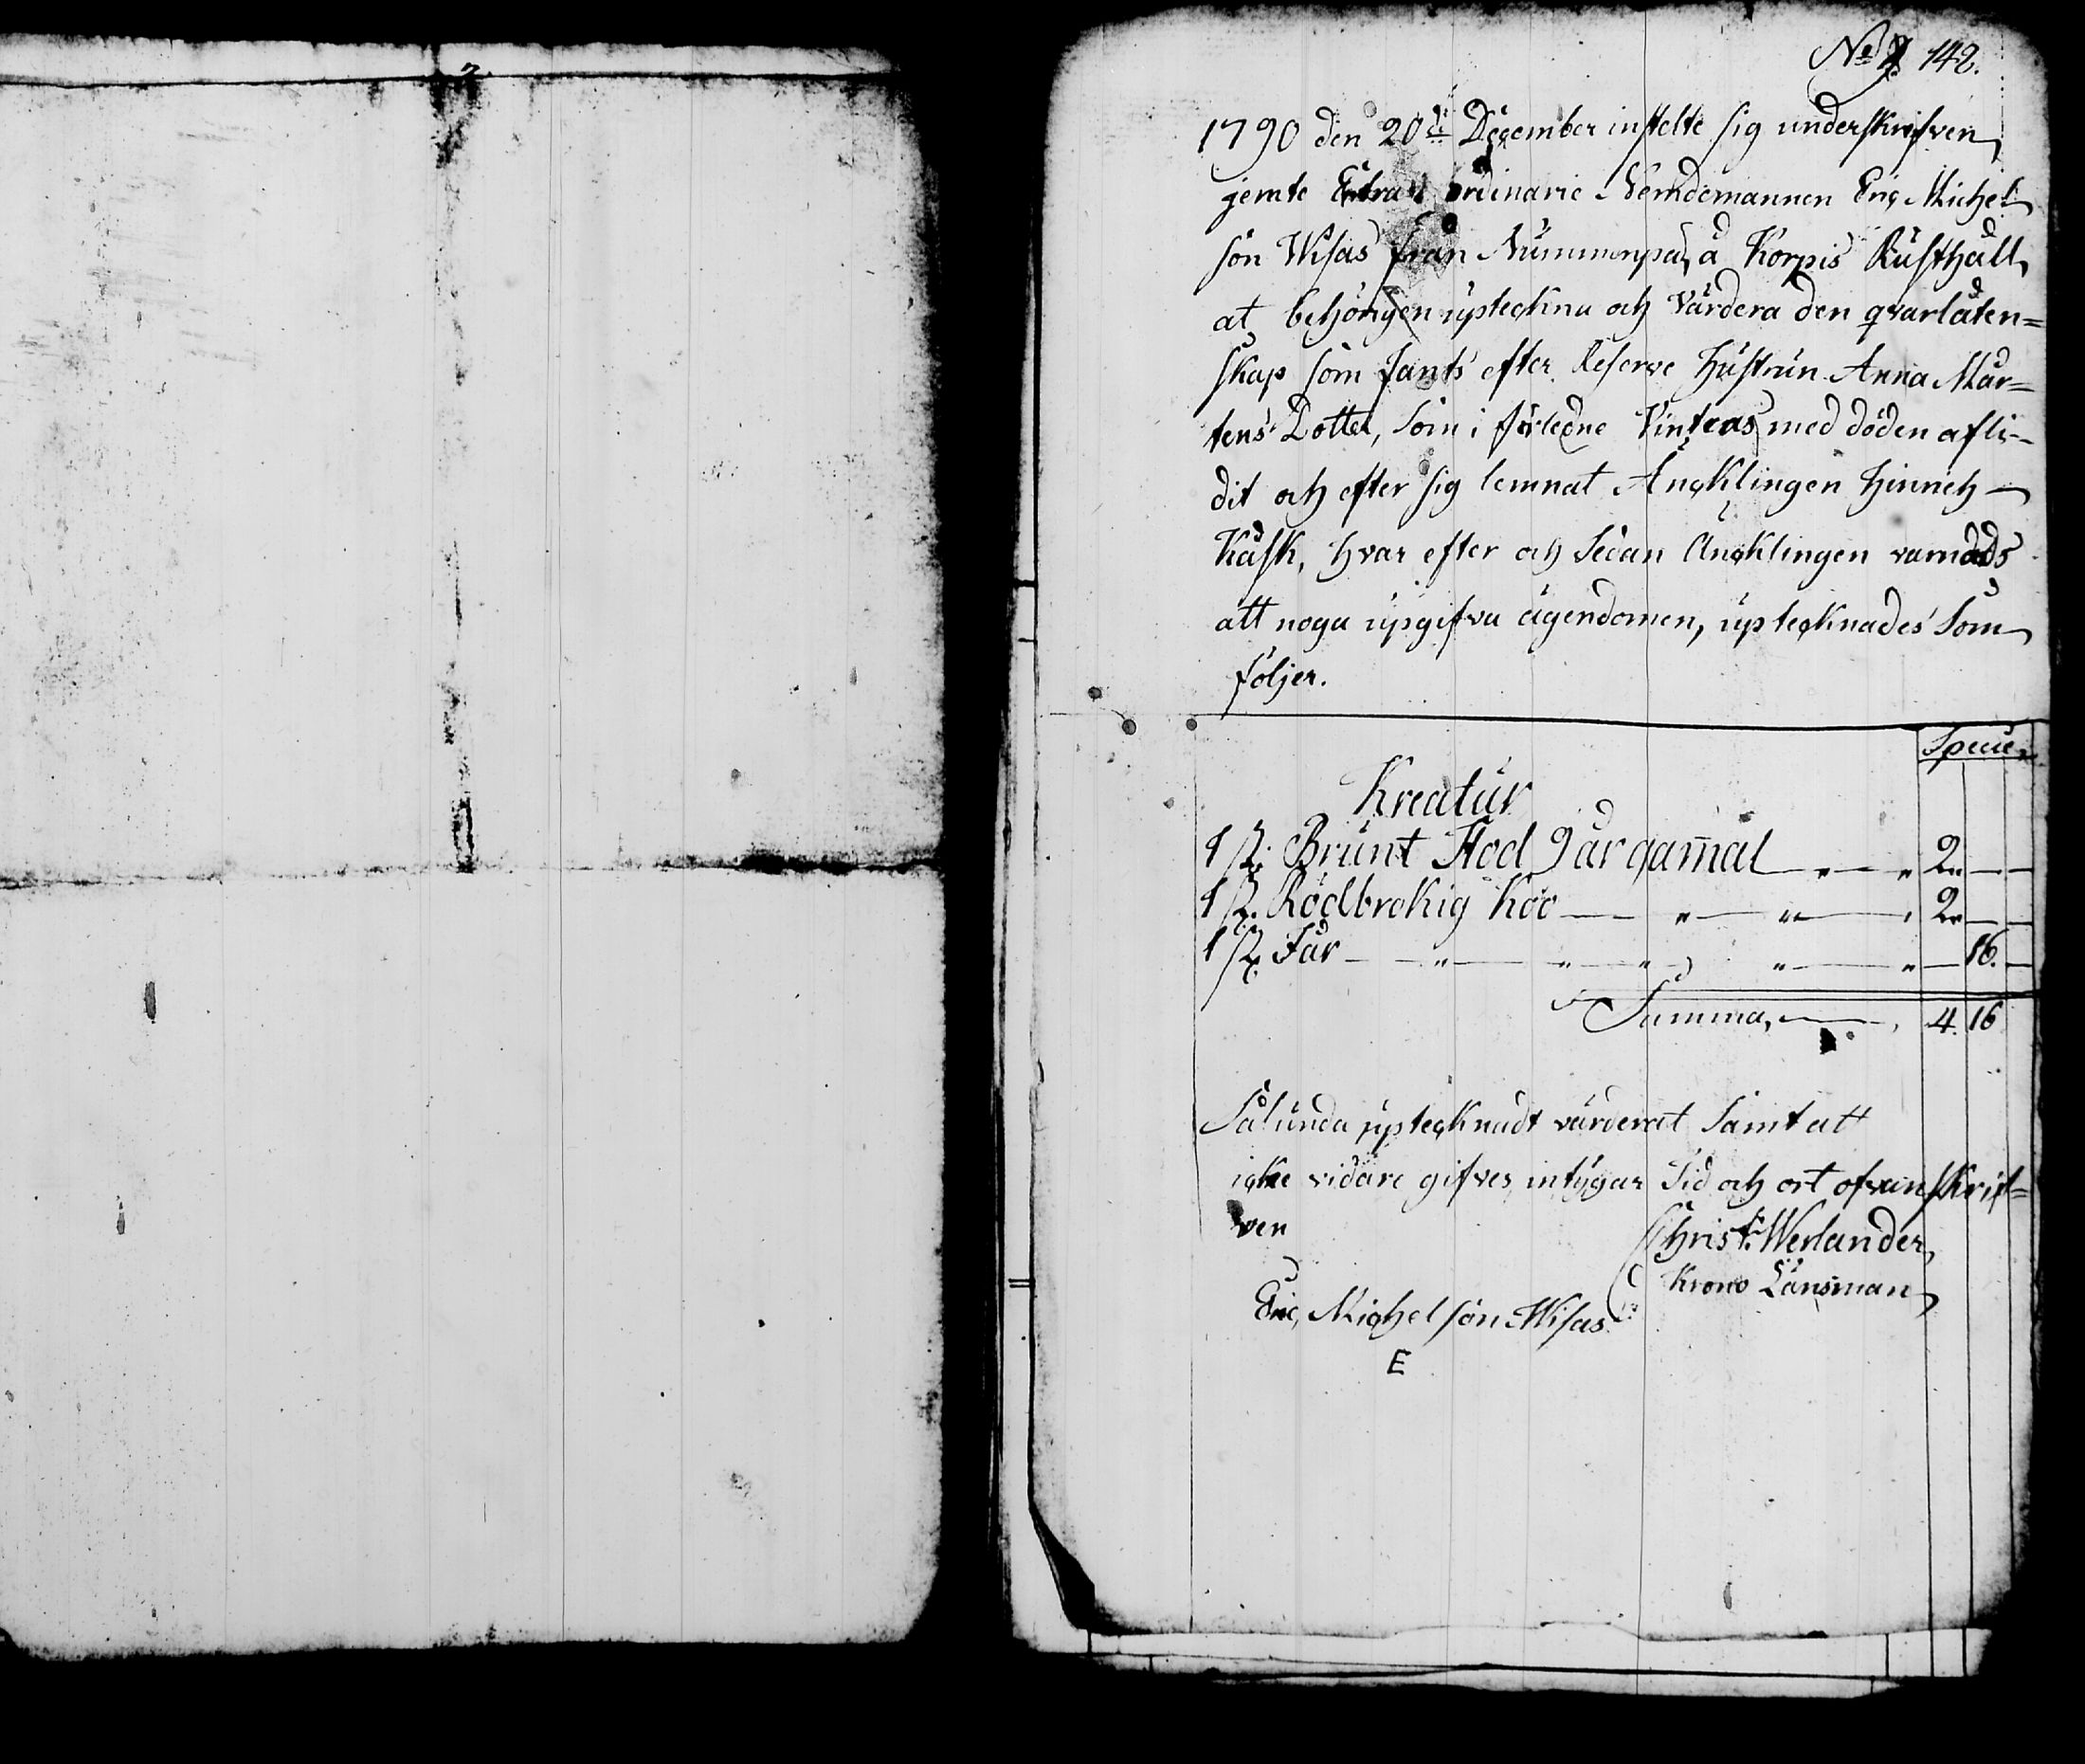 No 142.
1790 den 20de December instelte sig underskrifven
jemte Extra ordinarie Nemdemannen Eric Michel
son Wisas från Nummenpä, å Korpis Rusthåll,
at behörigen upteckna och Värdera den qvarlåten=
skap som fants efter Reserve Hustrun Anna Mår=
tens Dotter, som i förledne Vintras med döden afli-
dit och efter sig lemnat Äncklingen Hinrich
Kask, hvar efter och Sedan Äncklingen varnads
att noga upgifva ägendomen, uptecknades Som
följer.
Specie
Kreatur
1 st. Brunt Stod 9 år gamalt 2
1 st. Rödbrokig Koo 2
1 st. Får 16.
Summa, 4. 16
Sålunda uptecknadt värderat Samt att
icke vidare gifves intygar Tid och ort ofvanskrif=
ven
Christ. Werlander
Krono Länsman
Eric Michelson Wisas
E